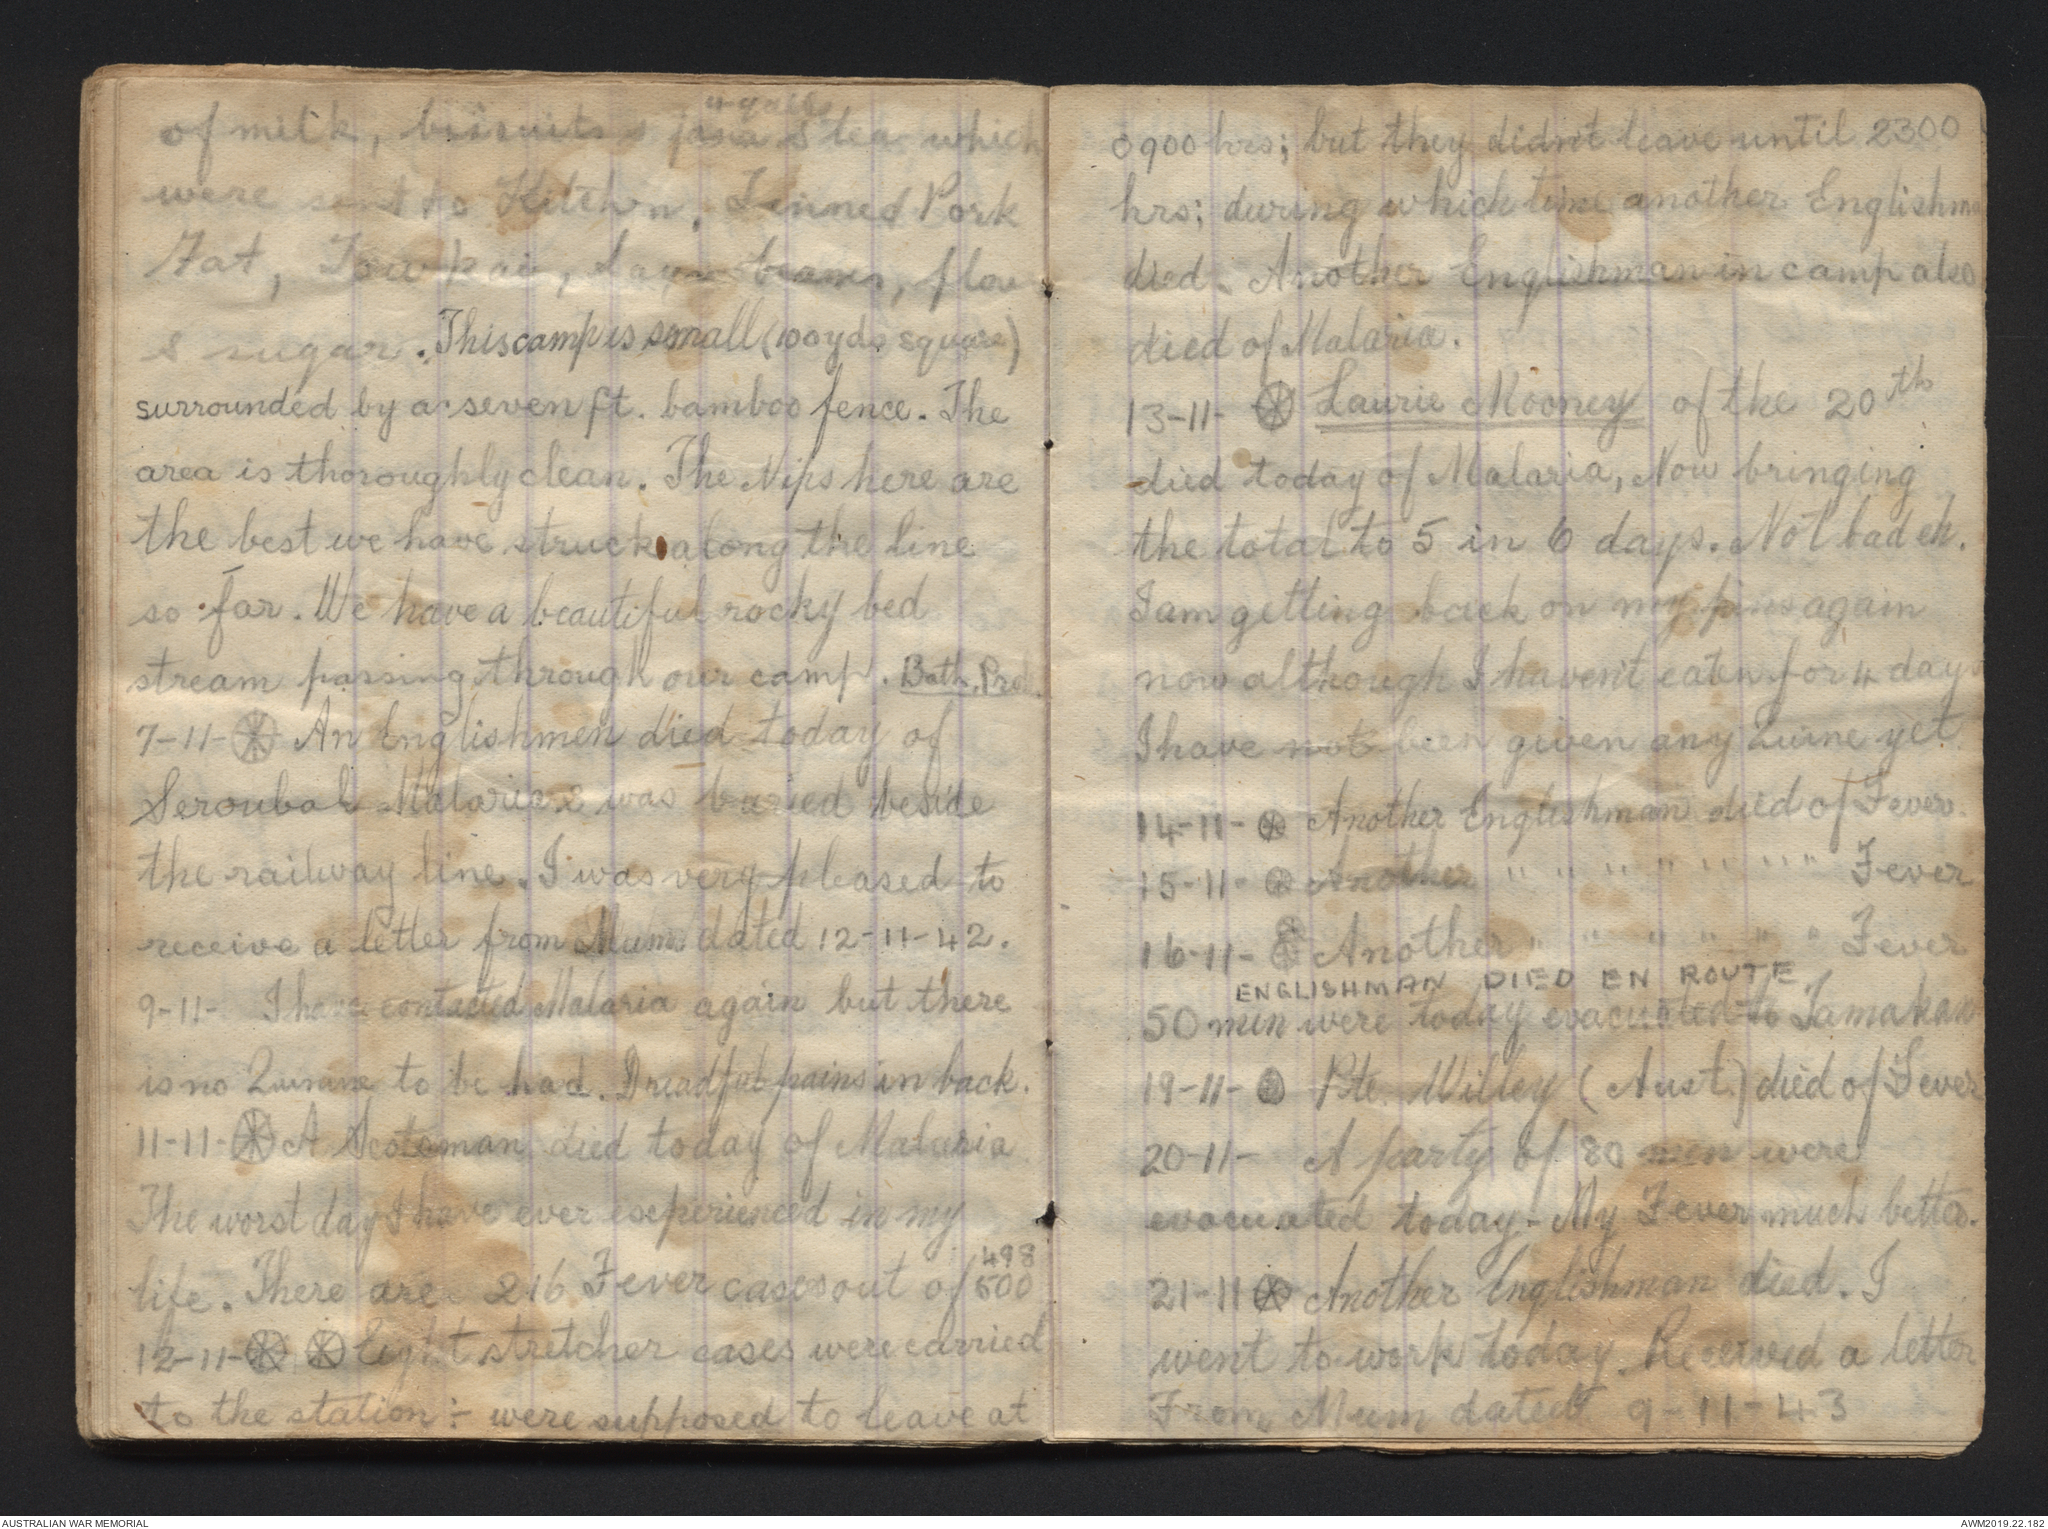 of milk, biscuits & java & tea which
were sent to Kitchn. Tinned Pork
Fat, Towkai, Soya beans, flou
& sugar. This camp is small (100yds square)
surrounded by a seven ft. bamboo fence. The
area is thoroughly clean. The Nips here are
the best we have struck along the line
so far. We have a beautiful rocky bed
stream passing through our camp. Bath. Prob.
7-11- An Englishmen died today of
Seroubal Malaria & was buried beside
the railway line. I was very pleased to
receive a letter from Mum dated 12-11-42.
9-11- I have contacted Malaria again but there
is no to be had. Dreadful pains in back.
11-11- A Scotsman died today of Malaria
The worst day I have ever experienced in my
498
life. There are 216 Fever cases out of 500
12-11- light stretcher cases were carried
to the station :- were supposed to leave at
0900 hrs; but they didn't leave until 2300
hrs; during which time another Englishma
died. Another Englishman in camp also
died of Malaria.
13-11- Laurie Mooney of the 20th
died today of Malaria, Now bringing
the total to 5 in 6 days. Not bad eh.
I am getting back on my pins again
now although I haven't eaten for 4 days
I have not been given any Quine yet
14-11- Another Englishman died of Fever.
15-11- Another " " " " " " " Fever
16-11- Another " " " " " " Fever
ENGLISHMAN DIED EN ROUTE.
50 men were today evacuated to Tamakan
19-11- Pte. Willey (Aust.) died of Fever
20-11- A party of 80 men were
evacuated today - My Fever much better.
21-11 Another Englishman died. I
went to work today. Received a letter
From Mum dated 9-11-43
AUSTRALIAN WAR MEMORIAL
AWM2019.22.182